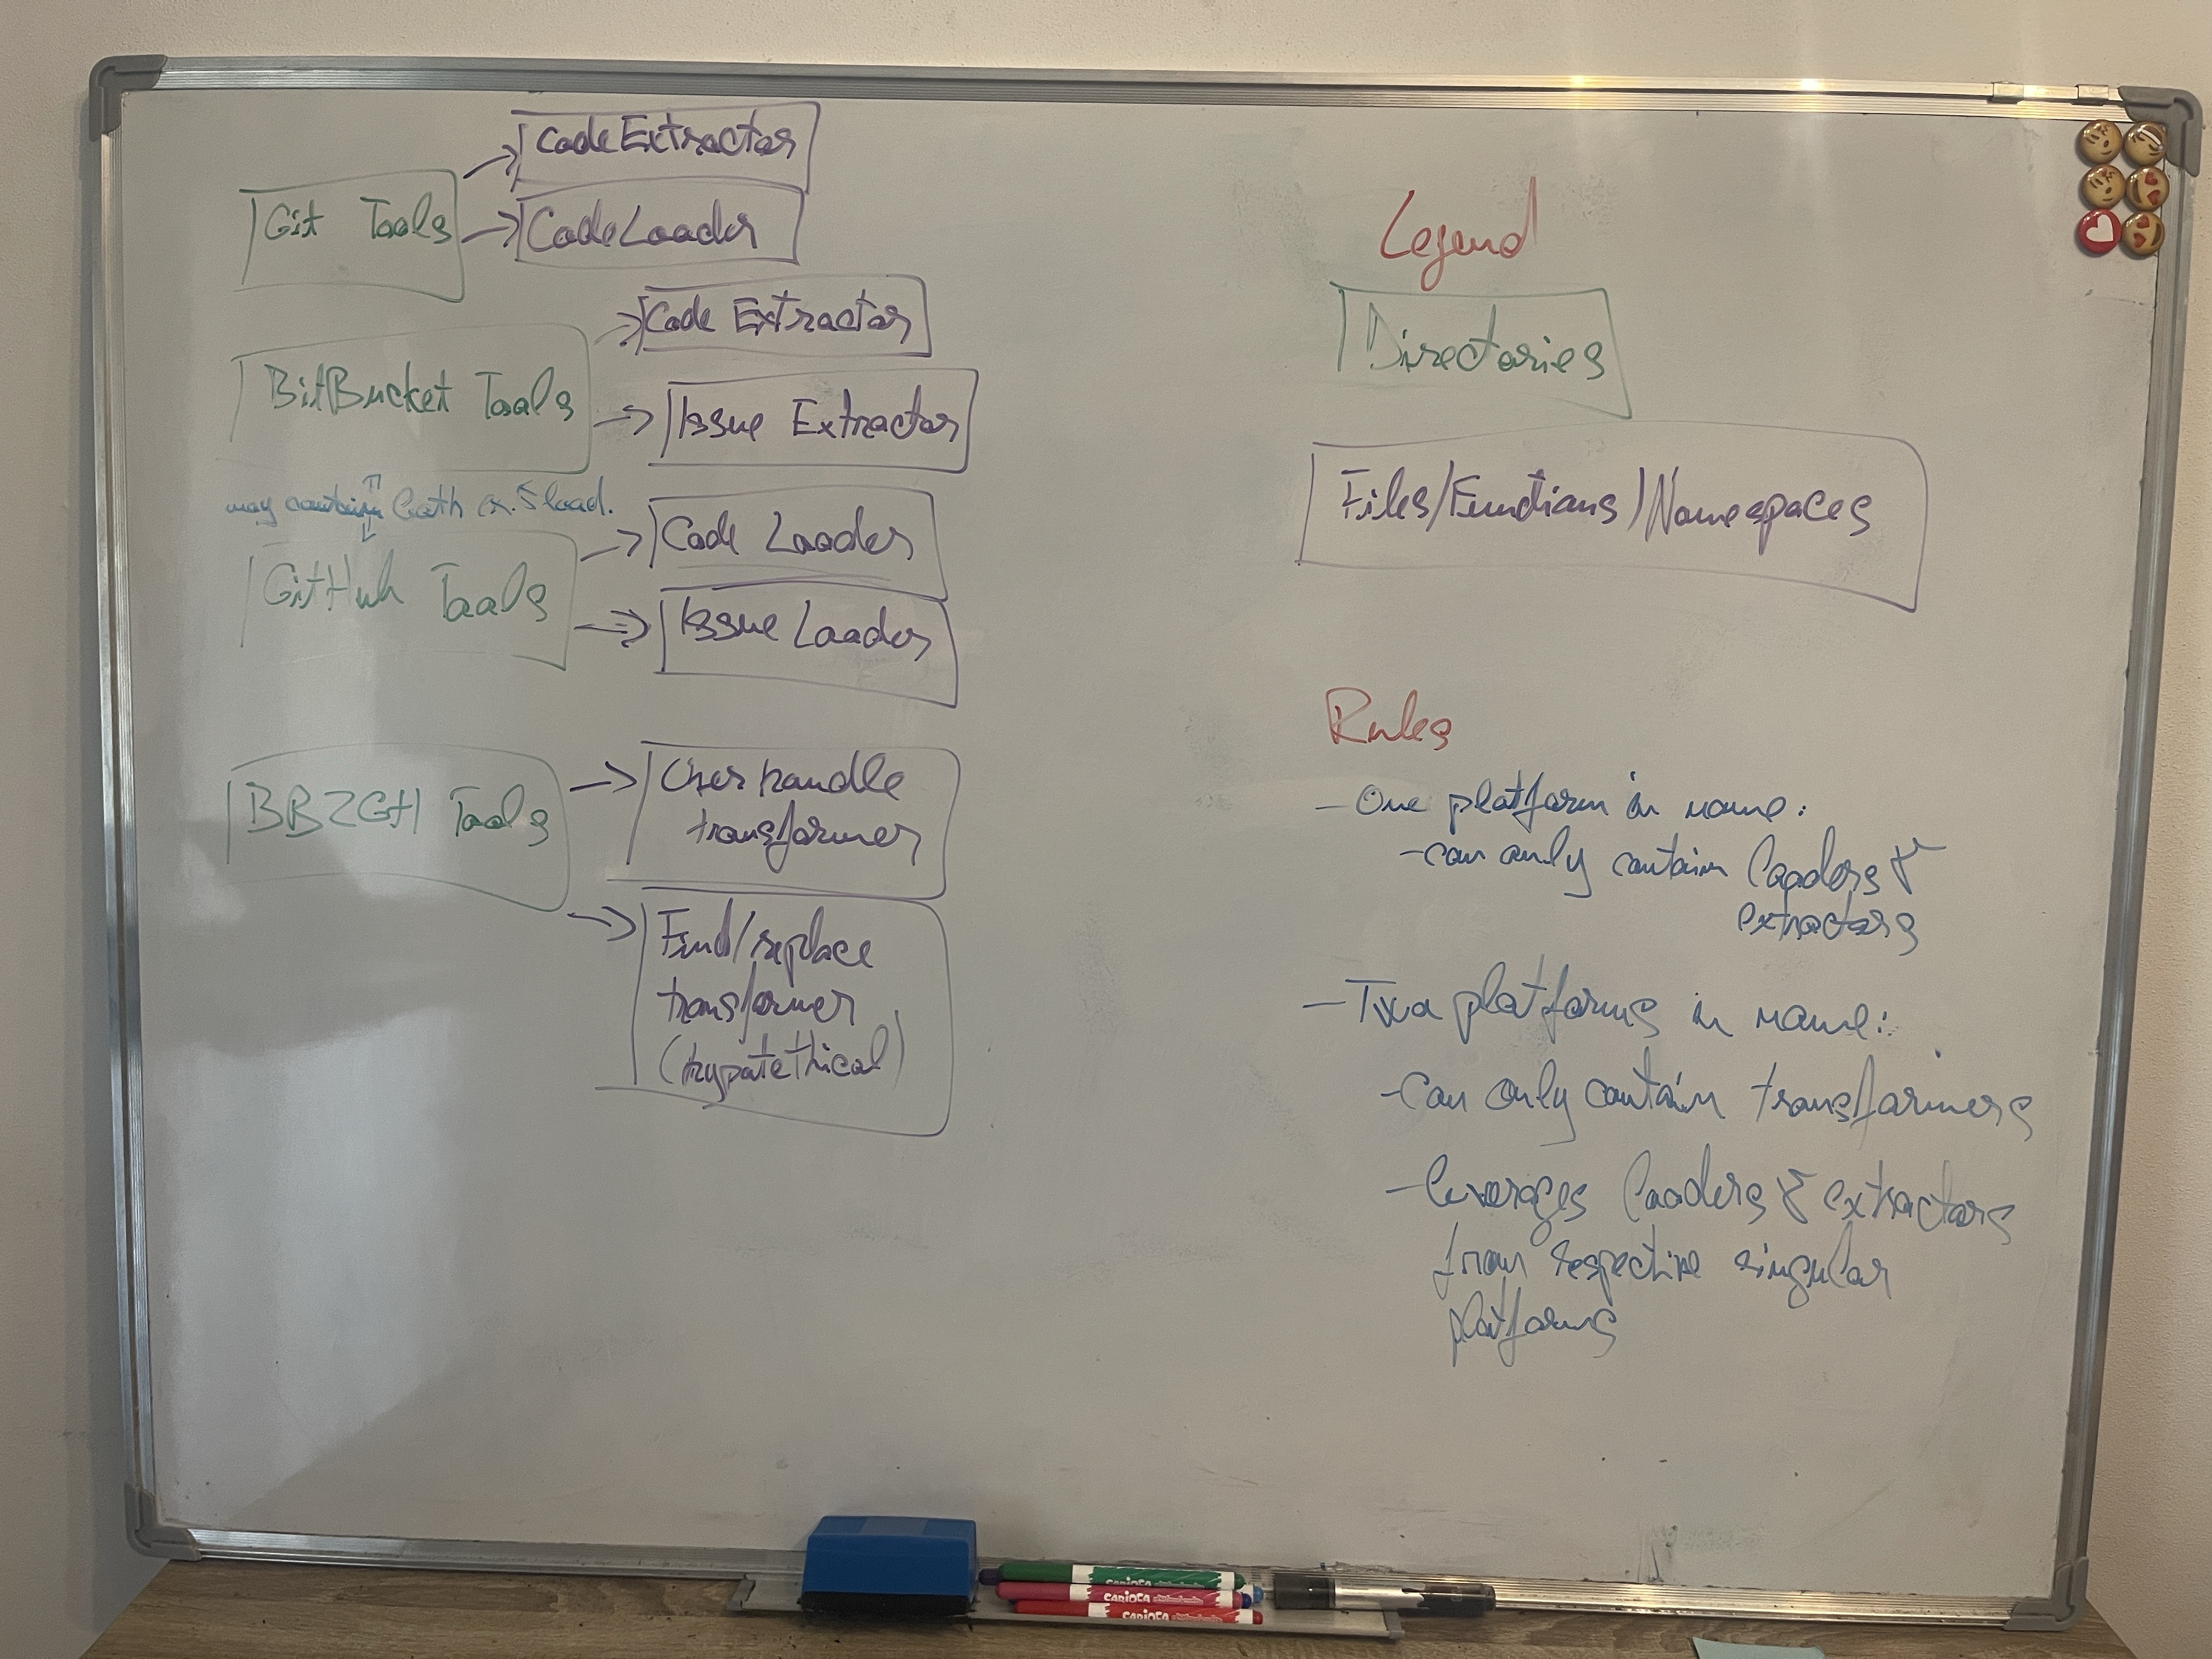 CodeExtractor
Git Tools
CodeLoader
Code Extractor
BitBucket Tools
Issue Extractor
may contain both ex. & load.
Code Loader
GitHub Tools
Issue Loader
BB2GH Tools
User handle
transformer
Find/replace
transformer
(hypothethical)
Legend
Directories
Files/Functions/Namespaces
Rules
- One platform in name:
- can only contain loaders &
extractors
- Two platforms in name:
- Can only contain transformers
- leverages loaders & extractors
from respective singular
platforms
CARIOCA
CARIOCA
CARIOCA